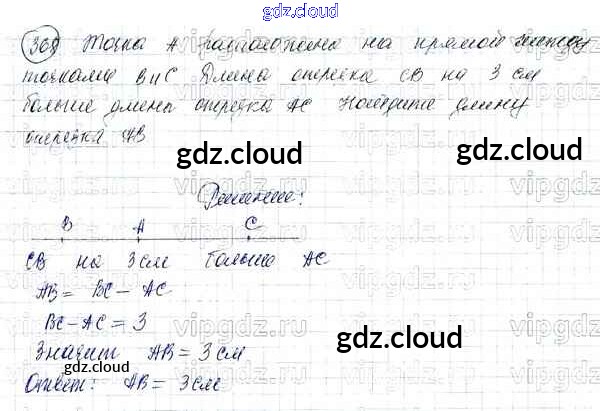 gdz.cloud
368 Точка А расположена на прямой между
точками В и С Длина отрезка СВ на 3 см
больше длины отрезка АС Найдите длину
отрезка АВ
gdz.cloud
gdz.cloud
Решение:
В А С
СВ на 3 см больше АС
АВ = ВС – АС
ВС – АС = 3
gdz.cloud
Значит АВ = 3 см
gdz.cloud
Ответ: АВ = 3 см
vipgdz.ru